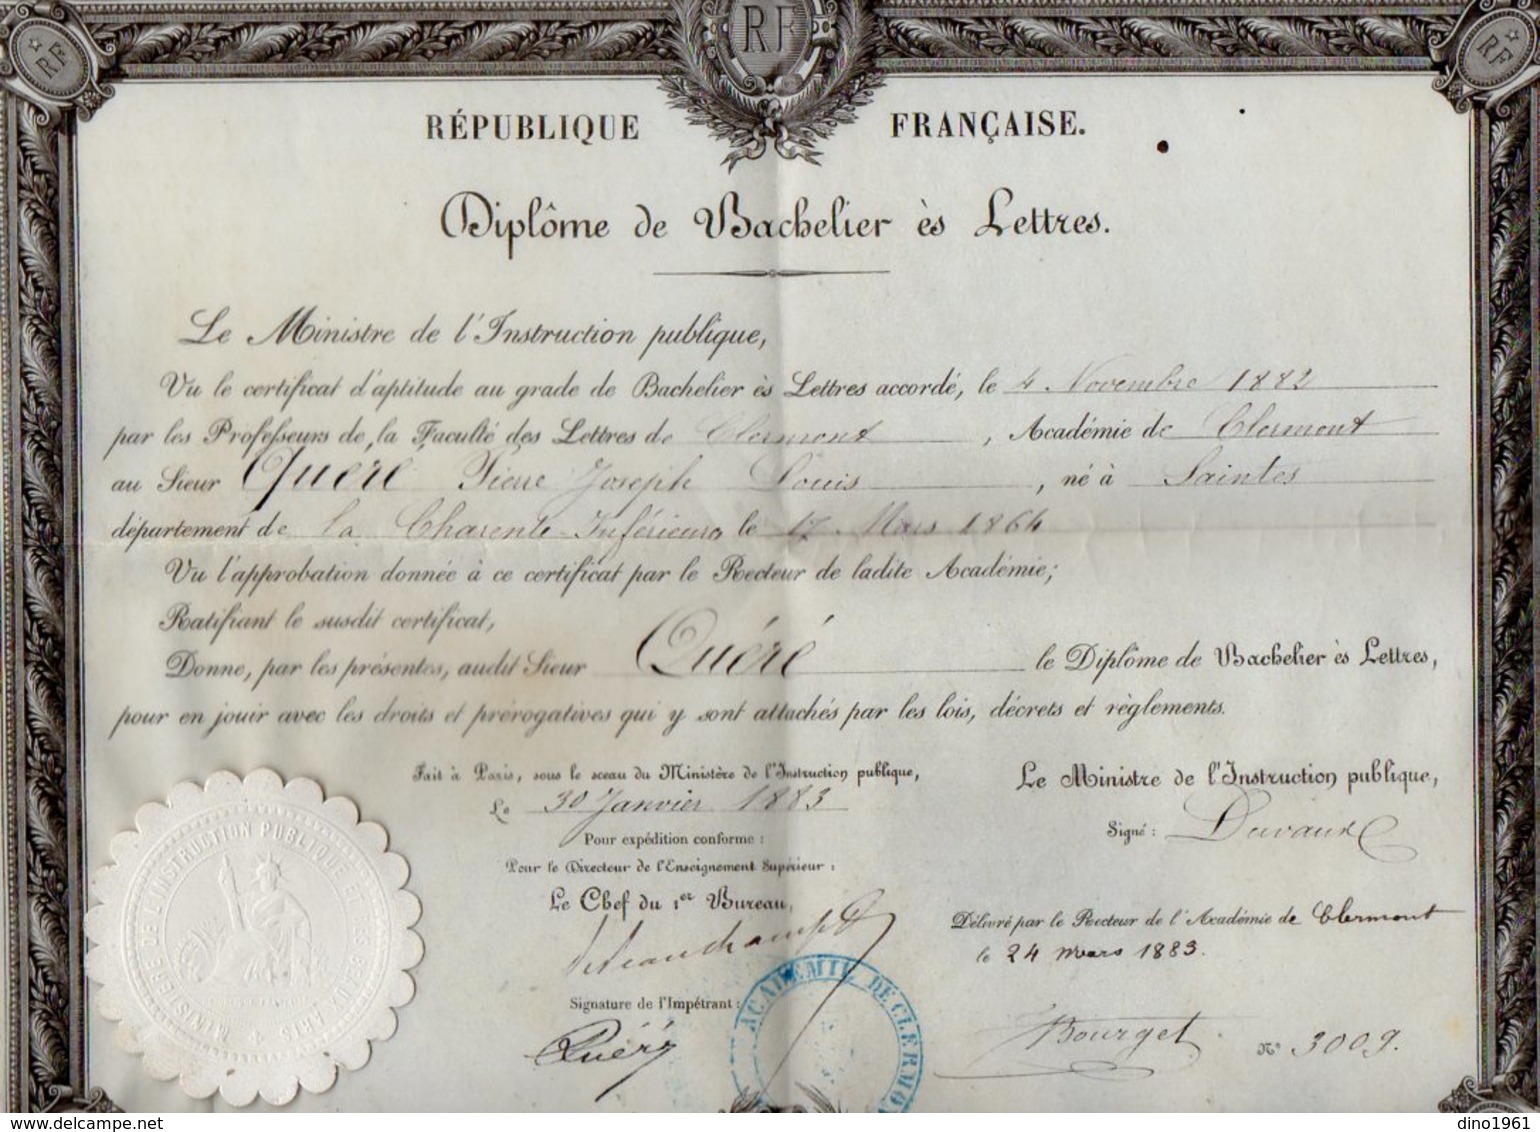 RF
RF
RF
RÉPUBLIQUE FRANÇAISE.
Diplôme de Bachelier ès Lettres.
Le Ministre de l'Instruction publique,
Vu le certificat d'aptitude au grade de Bachelier ès Lettres accordé, le 4 Novembre 1882
par les Professeurs de la Faculté des Lettres de Clermont, Académie de Clermont
au Sieur Quéré Pierre Joseph Louis, né à Saintes
département de la Charente Inférieure le 17 Mars 1864
Vu l'approbation donnée à ce certificat par le Recteur de ladite Académie;
Ratifiant le susdit certificat,
Donne, par les présentes, audit Sieur Quéré le Diplôme de Bachelier ès Lettres,
pour en jouir avec les droits et prérogatives qui y sont attachés par les lois, décrets et règlements.
Fait à Paris, sous le sceau du Ministère de l'Instruction publique,
Le 30 Janvier 1883
Pour expédition conforme :
Pour le Directeur de l'Enseignement Supérieur :
Le Chef du 1er Bureau,
Signature de l'Impétrant :
Quéré
Le Ministre de l'Instruction publique,
Signé : Duvaux
Délivré par le Recteur de l'Académie de Clermont
le 24 mars 1883.
Bourget
N° 3009.
MINISTÈRE DE L'INSTRUCTION PUBLIQUE ET DES BEAUX ARTS
ACADÉMIE DE CLERMON
dino1961